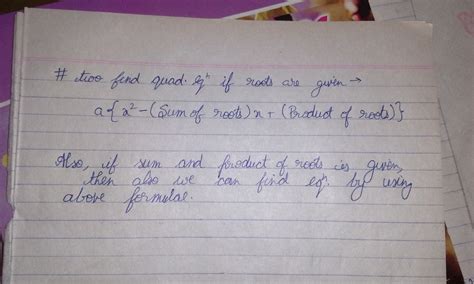 # two find quad. eqⁿ if roots are given →
a{x² - (Sum of roots)x + (Product of roots)}
Also, if sum and product of roots is given,
then also we can find eqⁿ. by using
above formulae.